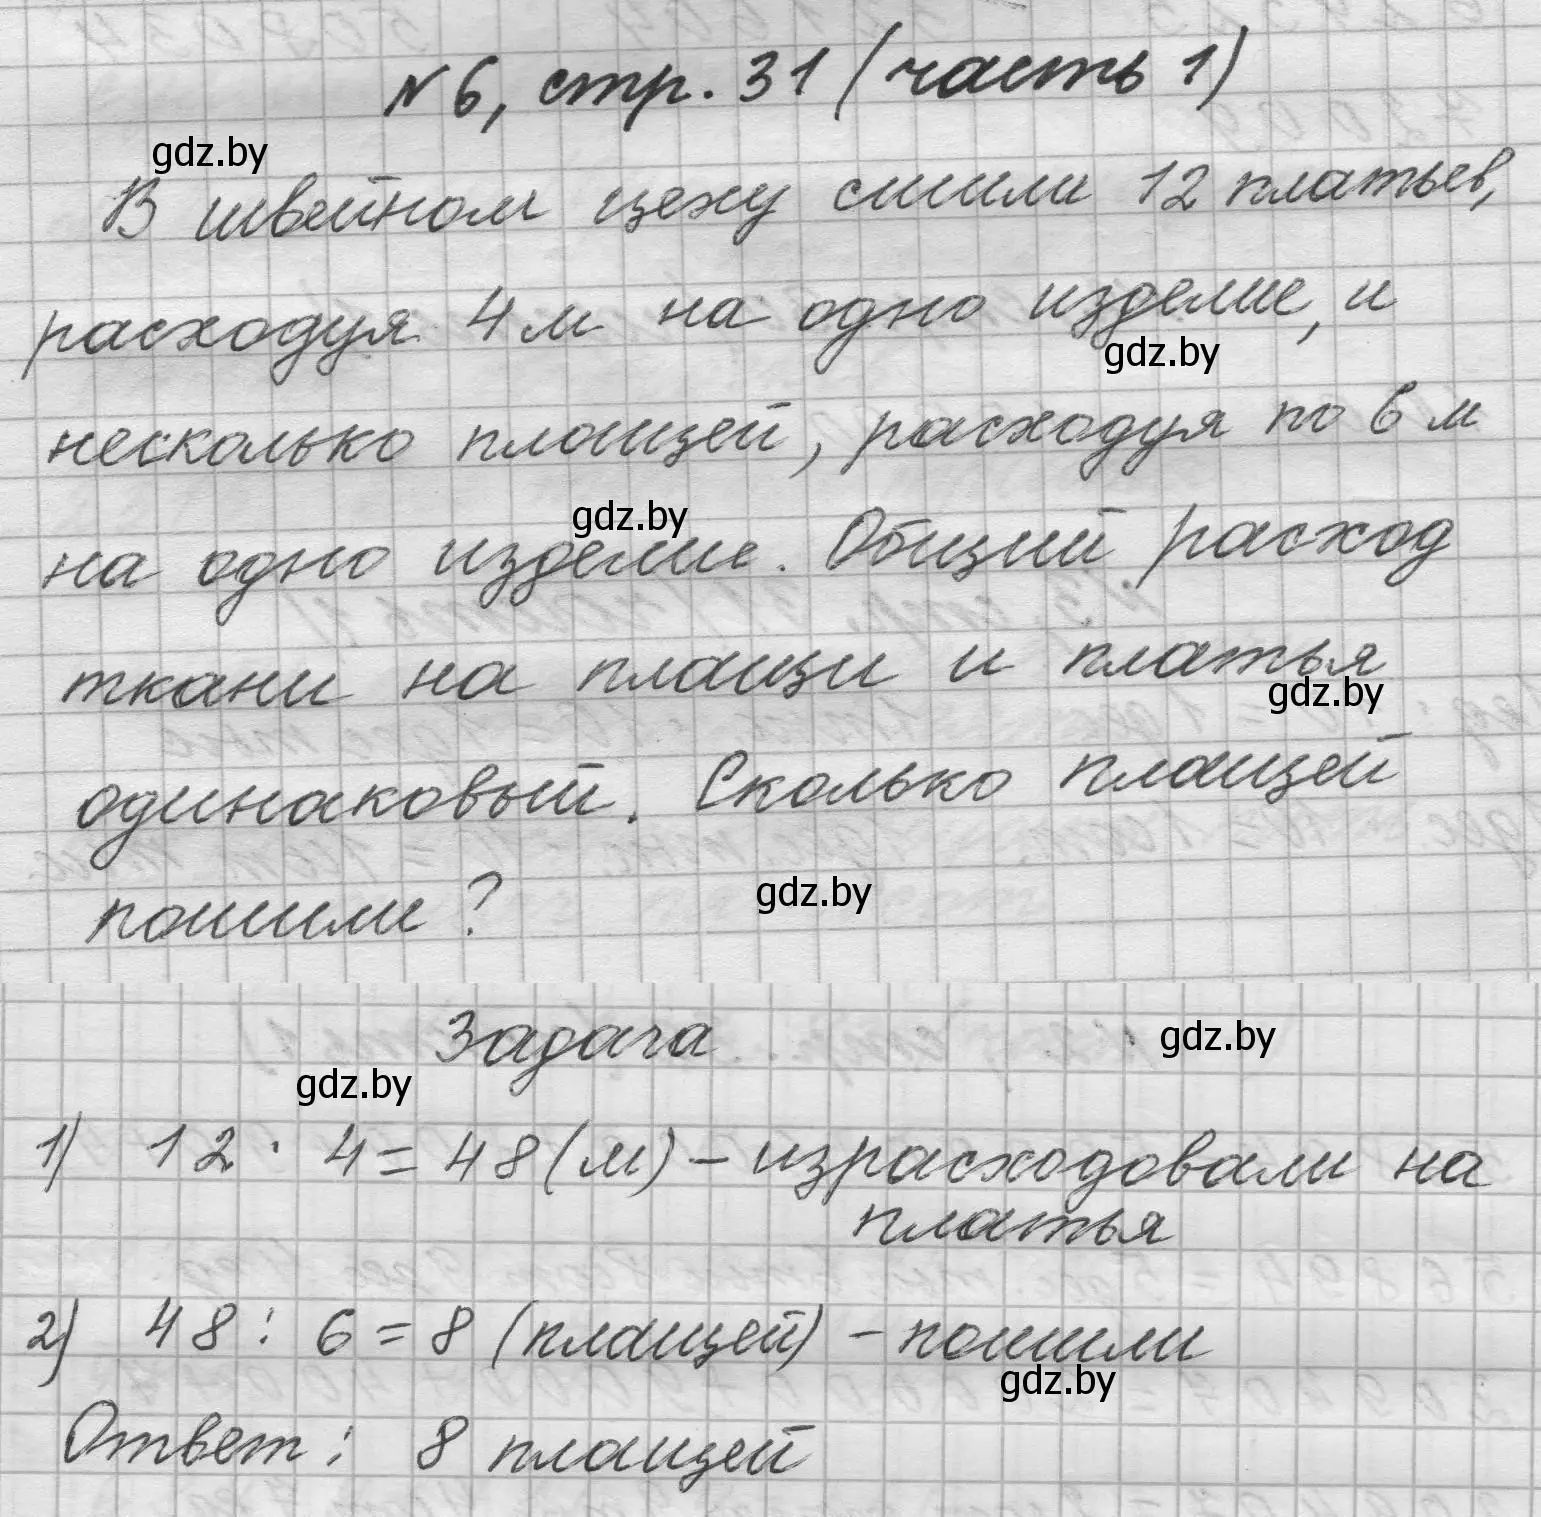 №6, стр. 31 (часть 1)
gdz.by
В швейном цеху сшили 12 платьев,
расходуя 4 м на одно изделие, и
gdz.by
несколько плащей, расходуя по 6 м
gdz.by
на одно изделие. Общий расход
ткани на плащи и платья
gdz.by
одинаковый. Сколько плащей
gdz.by
пошили?
Задача
gdz.by
gdz.by
1) 12 · 4 = 48 (м) – израсходовали на
платья
2) 48 : 6 = 8 (плащей) – пошили
gdz.by
Ответ: 8 плащей